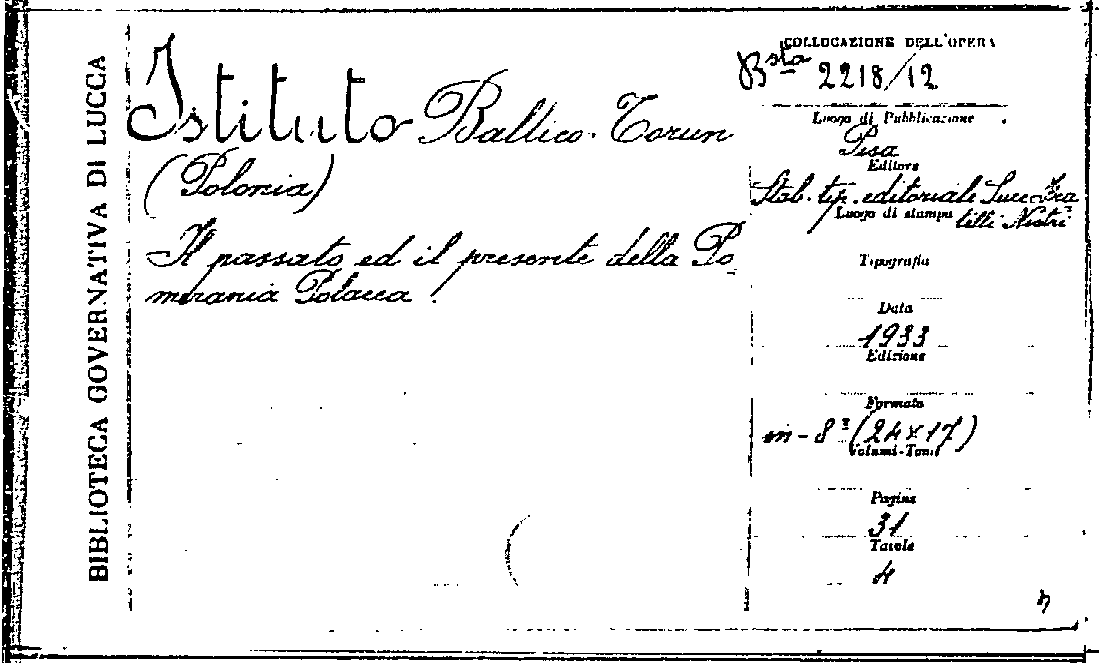 BIBLIOTECA GOVERNATIVA DI LUCCA
Istituto Baltico. Torun
(Polonia)
Il passato ed il presente della Po
merania Polacca.
COLLOCAZIONE DELL'OPERA
Bsta 2218/12
Luogo di Pubblicazione
Pisa
Editore
Stab. tip. editoriale Succ. Fra
telli Nistri
Luogo di stampa
Tipografia
Data
1933
Edizione
Formato
in-8° (24x17)
Volumi-Tomi
Pagine
31
Tavole
4